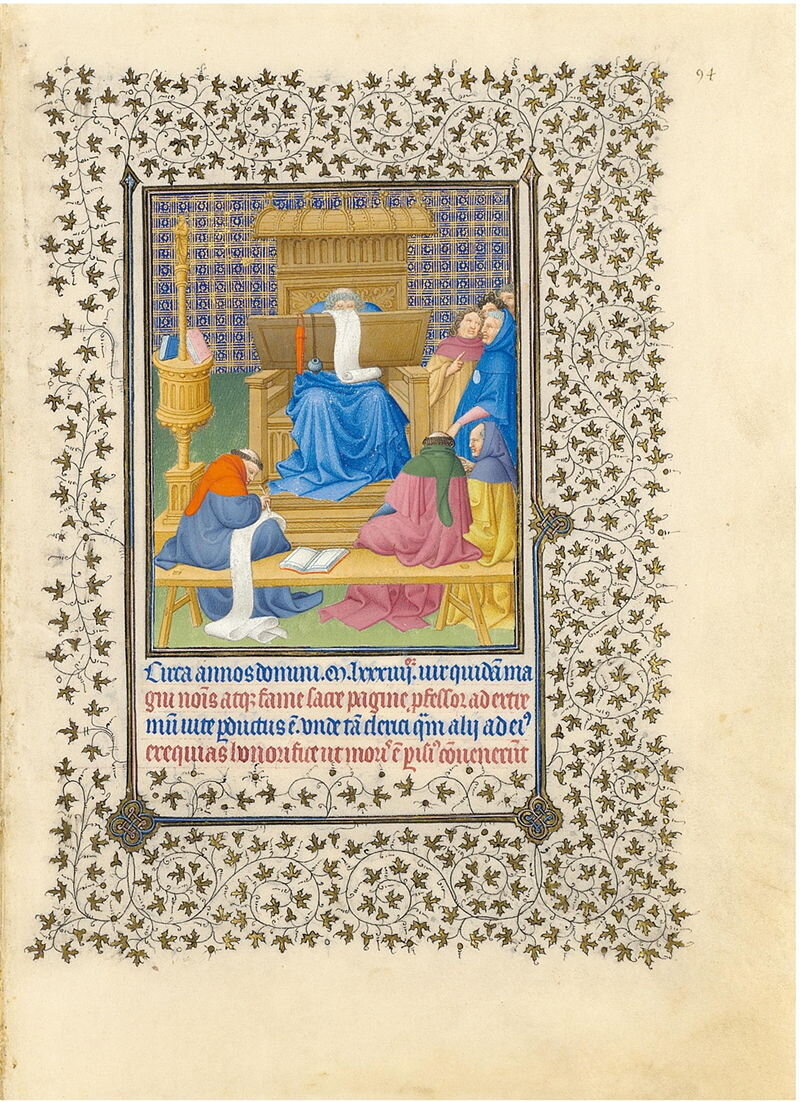 94
Circa annos domini. M. lxxxiiijor. uir quidã ma
gni nois atq; fame sacre pagine pfessor ad extre
mũ uite pductus ẽ. vnde tã clerici q̃m alij ad eiꝰ
exequias honorifice ut morꝰ ẽ pisiꝰ cõuenerũt